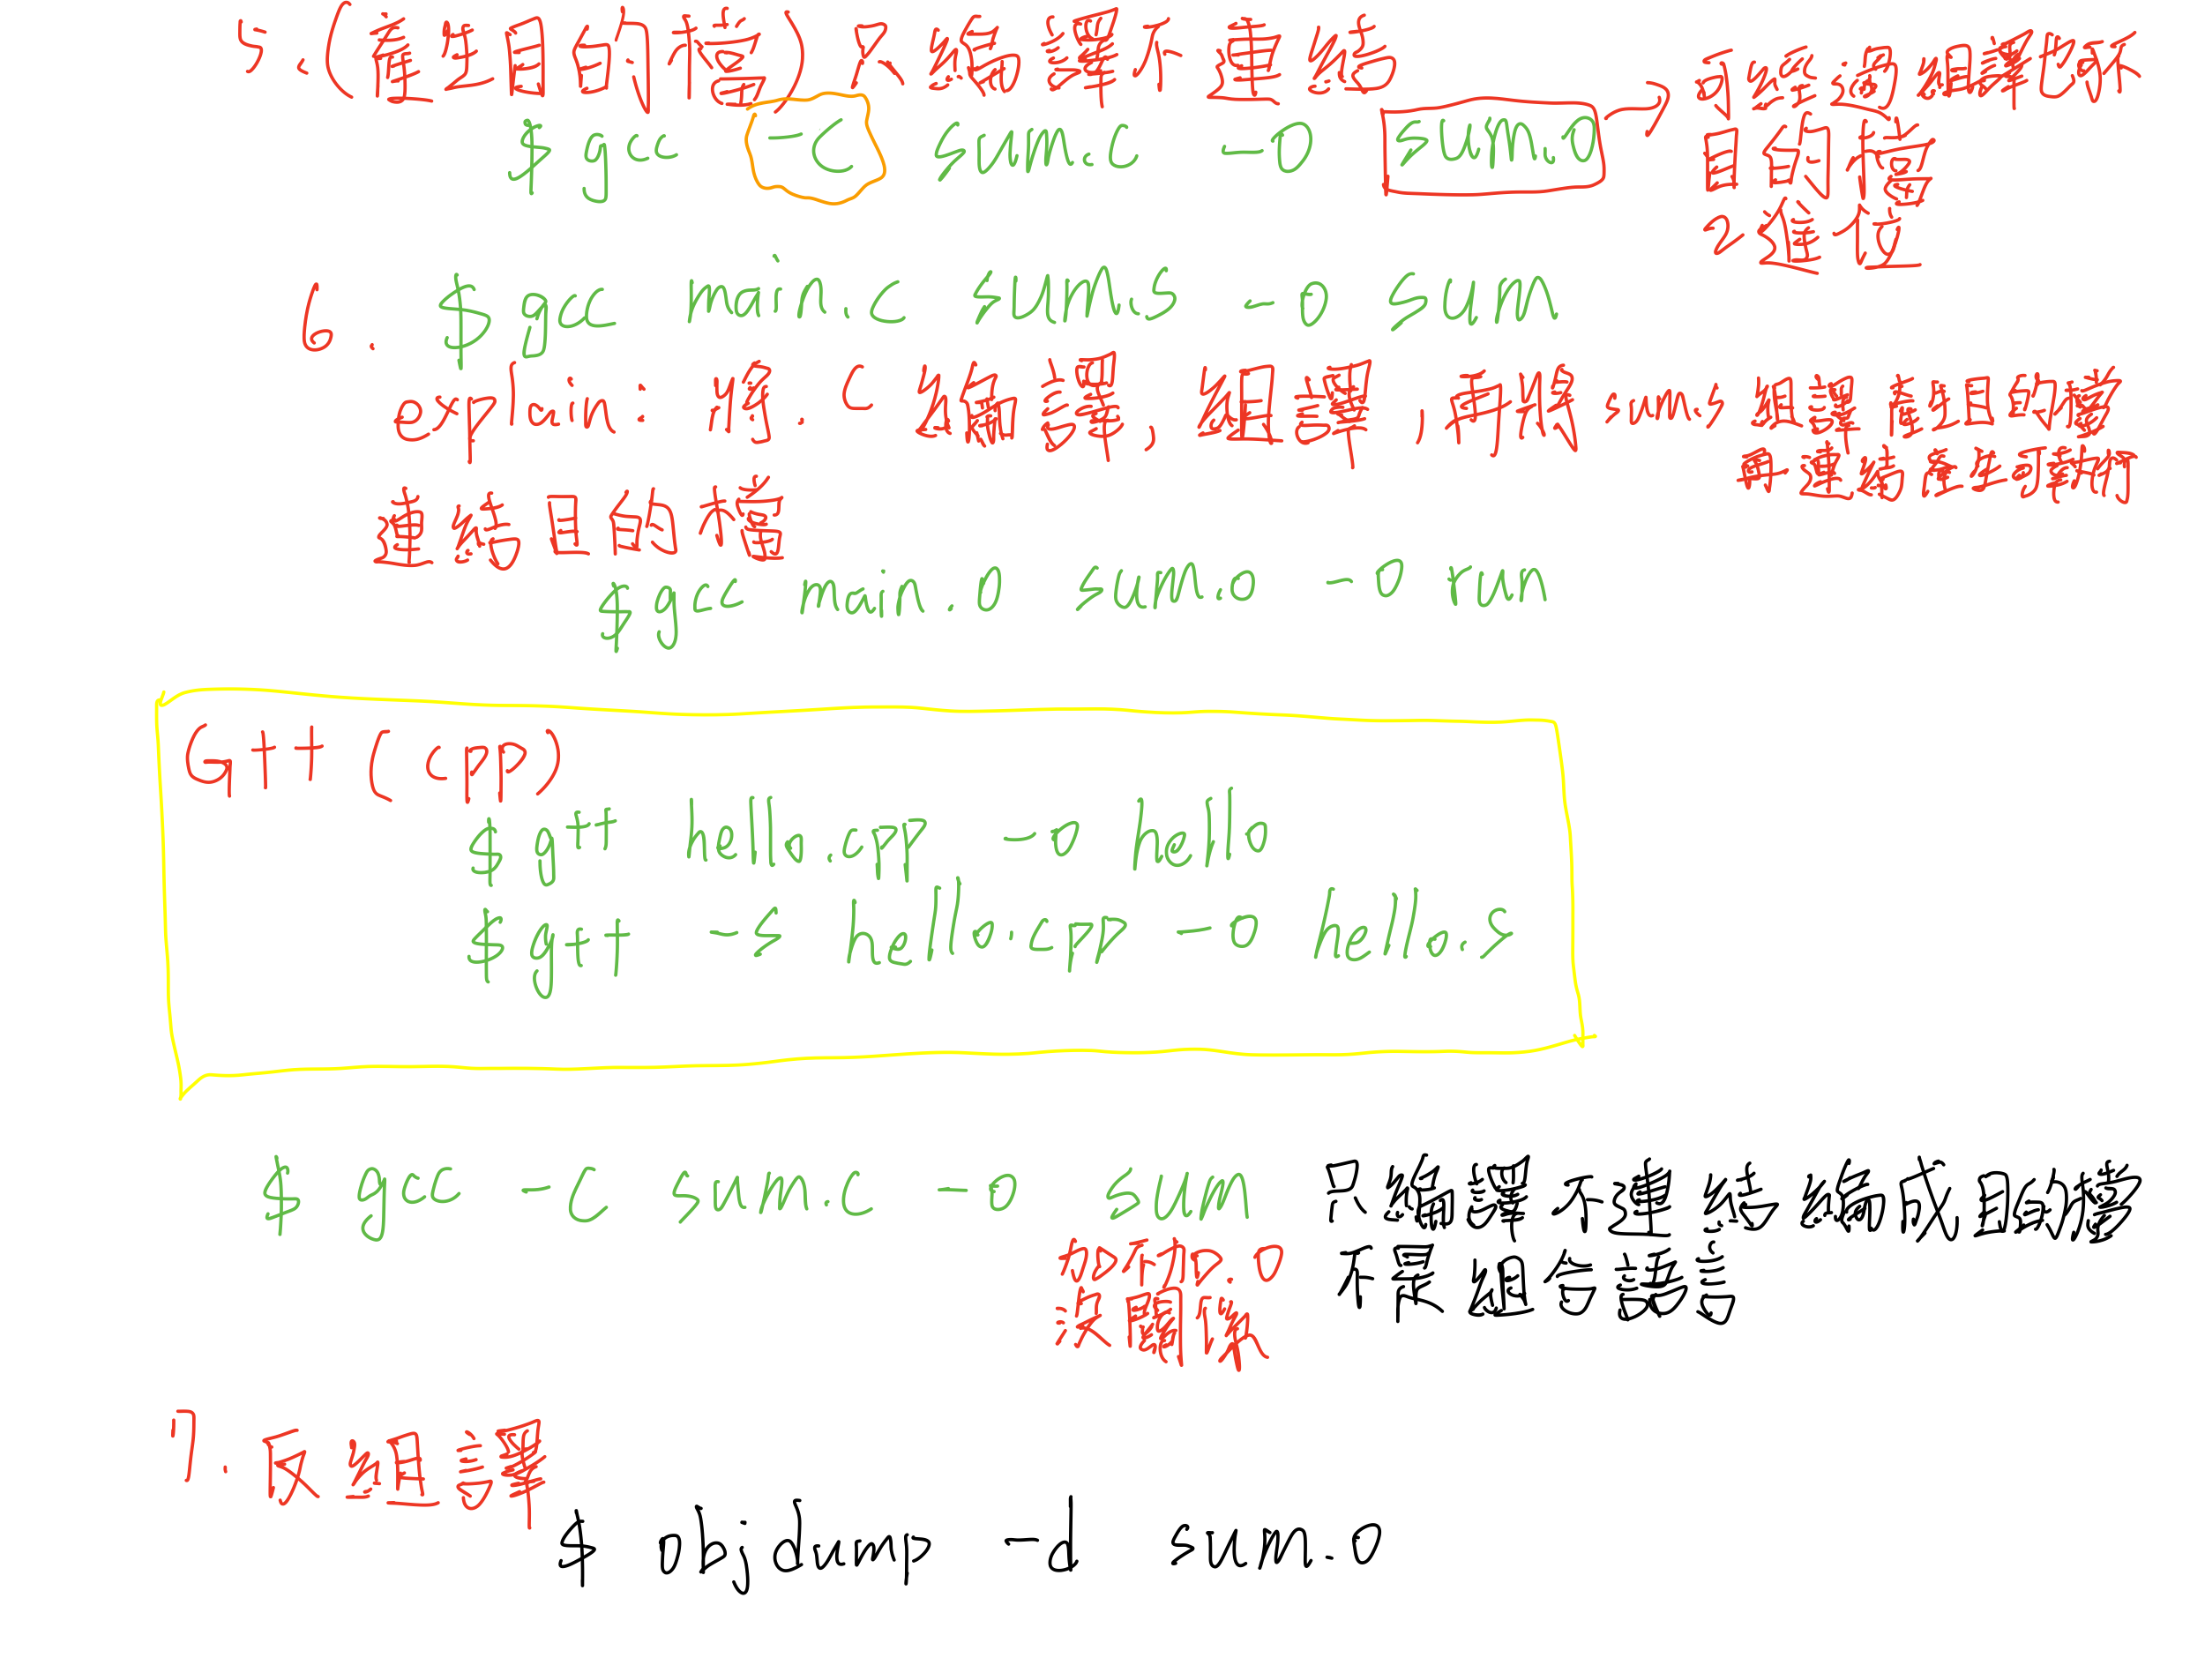 5. (產生目的檔) 只編譯不連結
$ gcc -c sum.c -o sum.o
6. $ gcc main.c sum.s -o sum
explain: 將.c 編譯, 組譯, 再將.s組譯 幫目的檔
再連結產生可執行
連結目的檔
$ gcc main.o sum.o -o run
G++ (cpp)
$ g++ hello.cpp -o hello
$ g++ -S hello.cpp -o hello.s
$ gcc -c sum.c -o sum
沒加.o
沒關係
只編譯不連結 編成目的檔
不是組合語言
7. 反組譯
$ objdump -d sum.o
目的檔
2進位